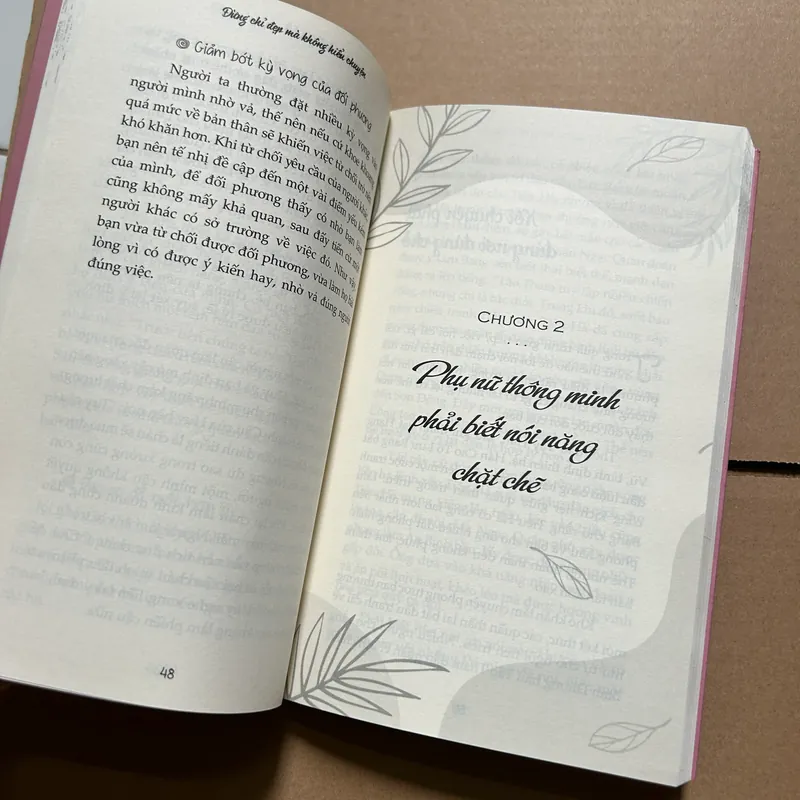 Đừng chỉ đẹp mà không hiểu chuyện
Giảm bớt kỳ vọng của đối phương
Người ta thường đặt nhiều kỳ vọng vào
người mình nhờ vả, thế nên nếu cứ khoe khoang
quá mức về bản thân sẽ khiến việc từ chối trở nên
khó khăn hơn. Khi từ chối yêu cầu của người khác,
bạn nên tế nhị đề cập đến một vài điểm yếu kém
của mình, để đối phương thấy có nhờ bạn làm
cũng không mấy khả quan, sau đấy tiến cử một
người khác có sở trường về việc đó. Như vậy
bạn vừa từ chối được đối phương, vừa làm họ hài
lòng vì có được ý kiến hay, nhờ vả đúng người
đúng việc.
48
CHƯƠNG 2
...
Phụ nữ thông minh
phải biết nói năng
chặt chẽ